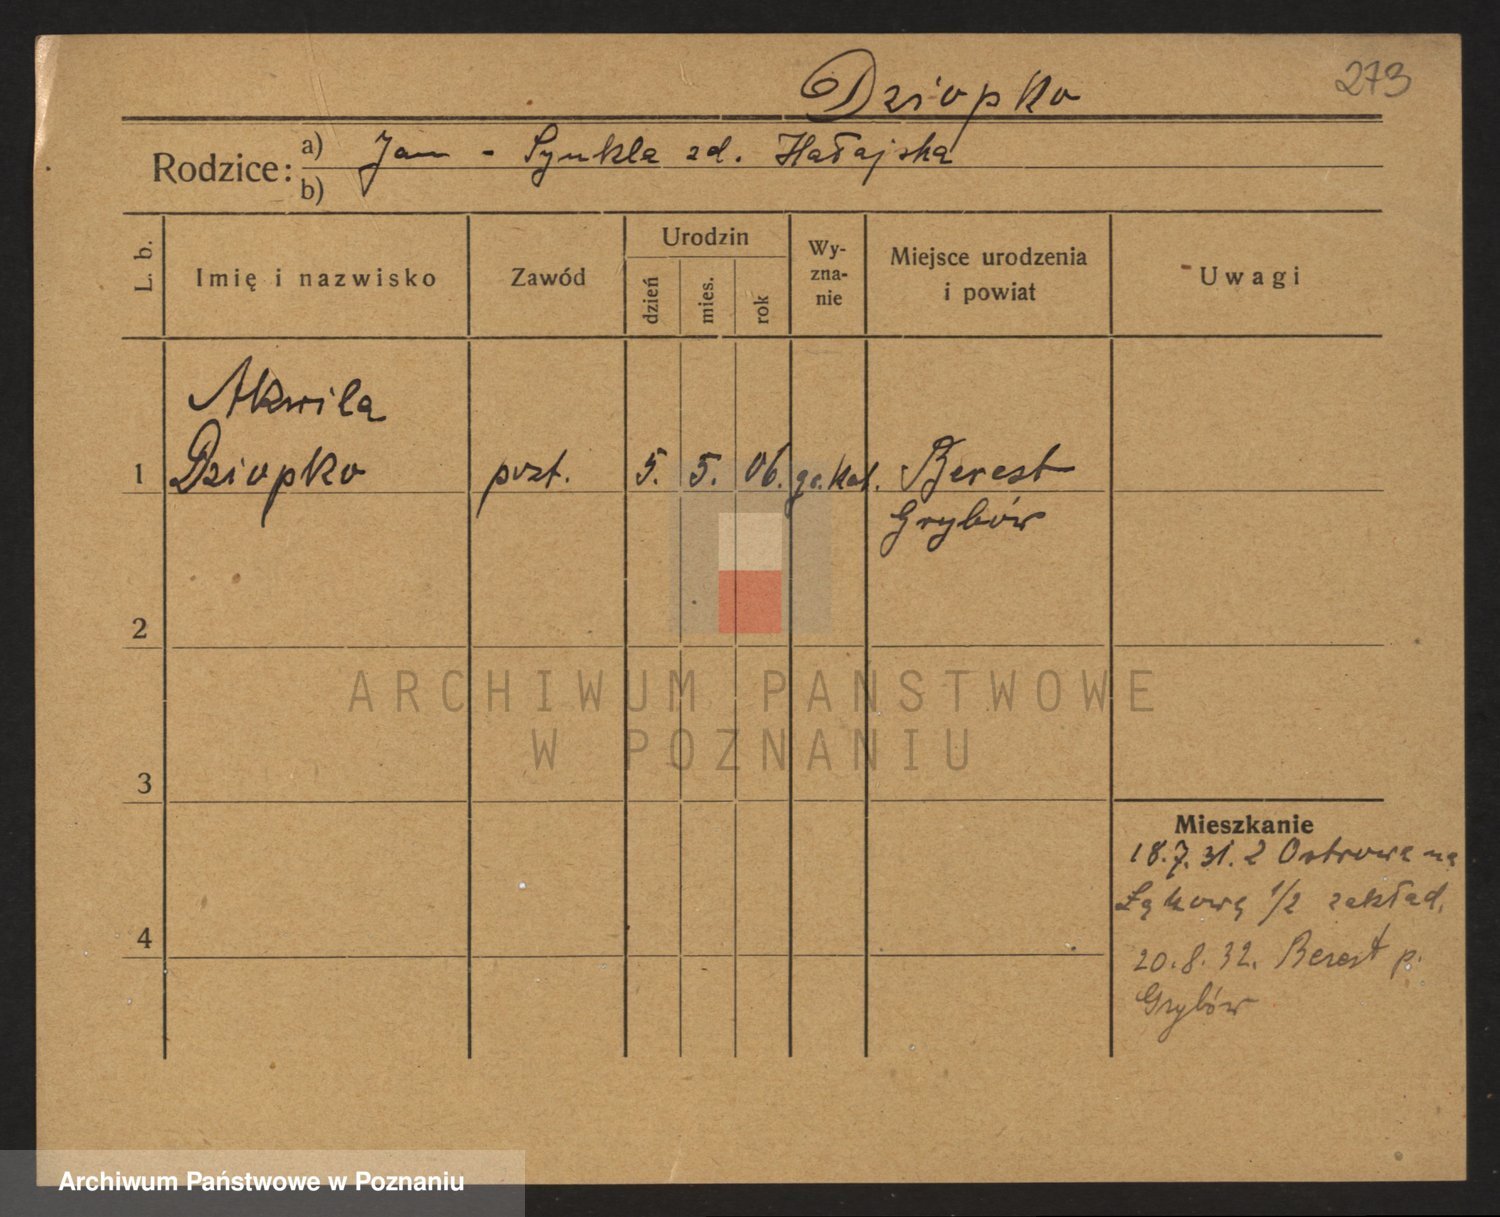 Dziopko
273
Rodzice: a) Jan - Synkla zd. Hałajska
b)
L. b.
Imię i nazwisko
Zawód
Urodzin
dzień
mies.
rok
Wy-
zna-
nie
Miejsce urodzenia
i powiat
Uwagi
Akwila
1 Dziopko pozt. 5. 5. 06. gr.kat. Berest
Grybów
2
3
4
Mieszkanie
18.7.31. z Ostrowa na
Łąkową 1/2 zakład.
20.8.32. Berest p.
Grybów
ARCHIWUM PAŃSTWOWE
W POZNANIU
Archiwum Państwowe w Poznaniu